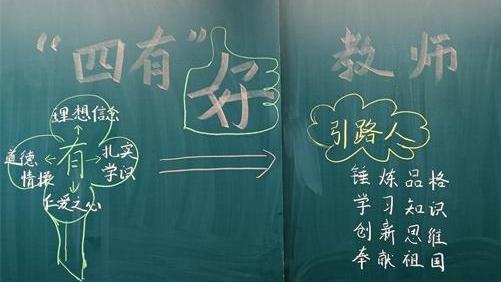 “四有”好教师
理想信念
道德情操
有
扎实学识
仁爱之心
引路人
锤炼品格
学习知识
创新思维
奉献祖国